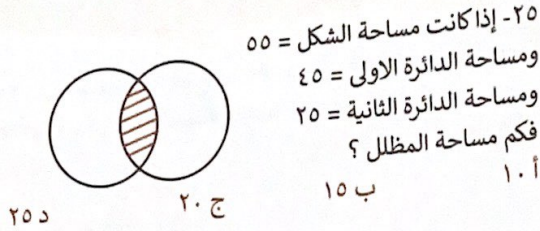 ٢٥- إذا كانت مساحة الشكل = ٥٥
ومساحة الدائرة الاولى = ٤٥
ومساحة الدائرة الثانية = ٢٥
فكم مساحة المظلل ؟
أ ١٠ ب ١٥ ج ٢٠ د ٢٥